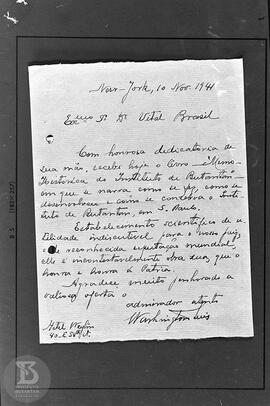 New-York, 10 Nov. 1941
Exmo Sr. Dr Vital Brasil
Com honrosa dedicatoria de
sua mão, recebo hoje o livro "Memo
Historica do Instituto de Butantan"
em que se narra como se fez, como se
desenvolveu e como se conserva o Insti-
tuto de Butantan, em S. Paulo.
Estabelecimento scientifico de u-
tilidade indiscutivel para o nosso paiz,
e de reconhecida reputação mundial,
elle é incontestavelmente obra sua, que o
honra e honra á Patria.
Agradece muito penhorado a
valiosa offerta o
admirador atento
Washington Luis
Hotel Westbury
INSTITUTO
BUTANTAN